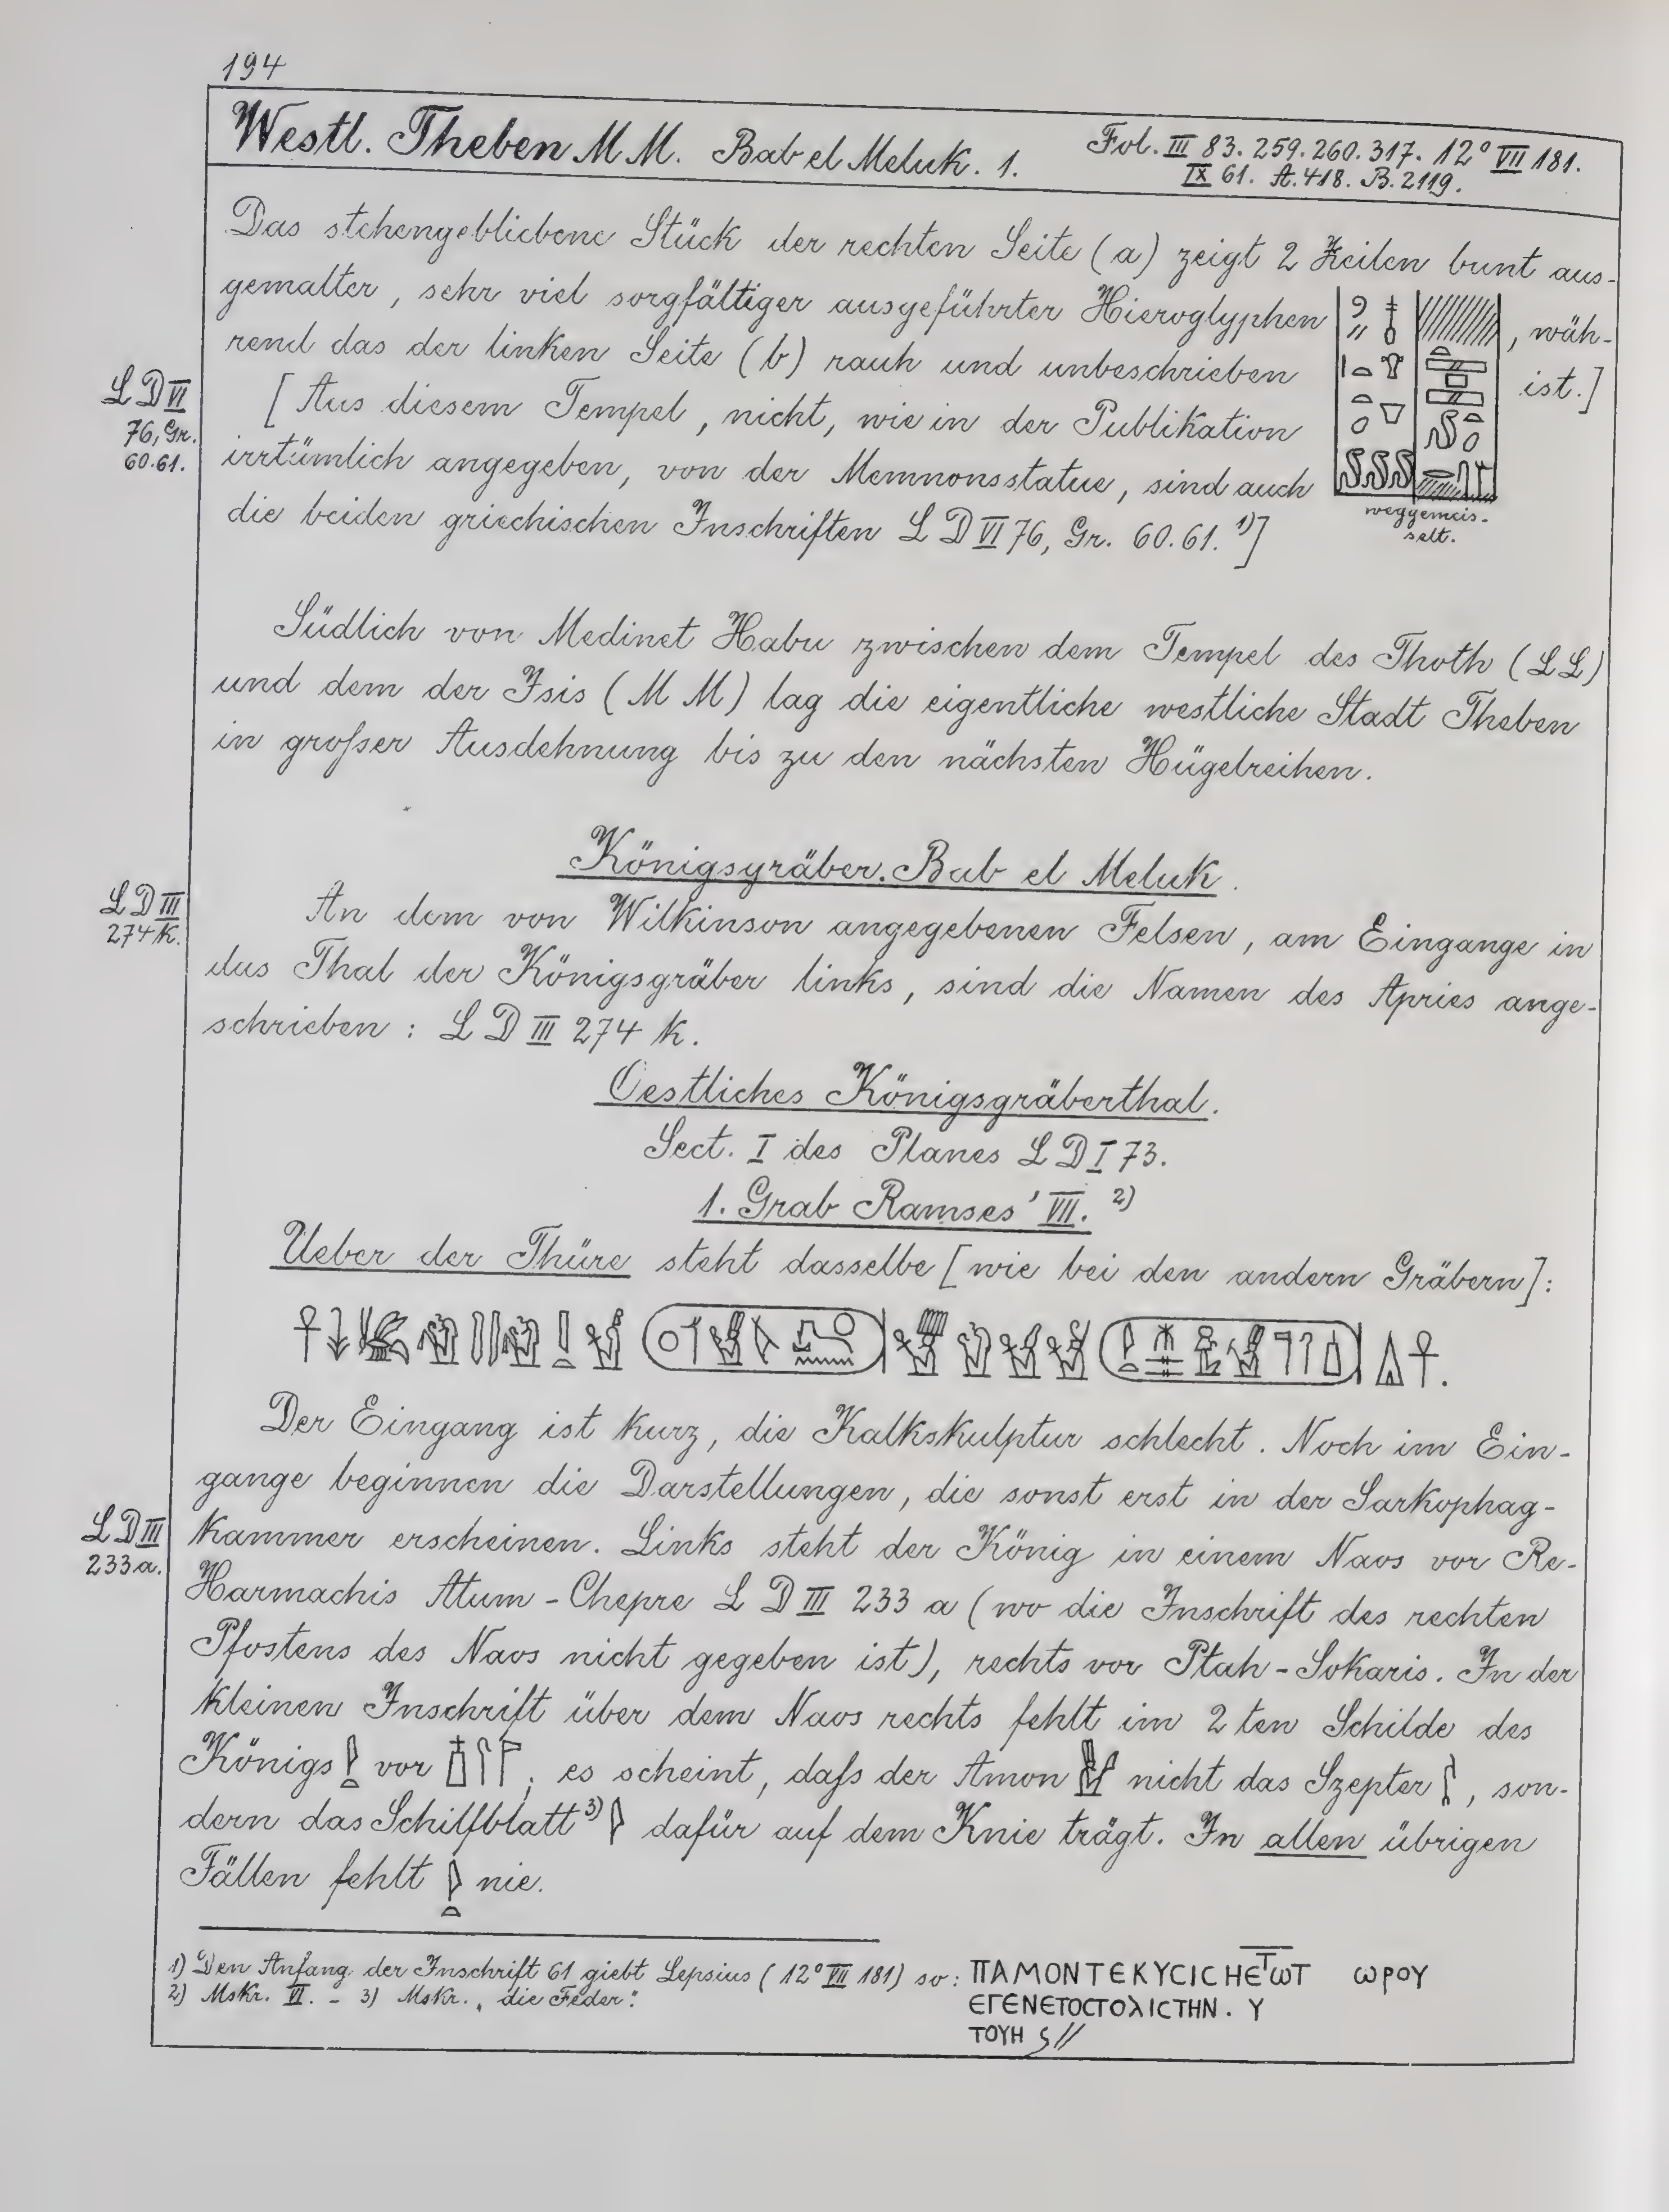 194
Westl. Theben M M. Bab el Meluk. 1.
Fol. III 83. 259. 260. 317. 12° VII 181.
IX 61. A. 418. B. 2119.
Das stehengebliebene Stück der rechten Seite (a) zeigt 2 Zeilen bunt aus-
gemalter, sehr viel sorgfältiger ausgeführter Hieroglyphen , wäh-
rend das der linken Seite (b) rauh und unbeschrieben ist.]
weggemeis-
selt.
LD VI
76, Gr.
60.61.
[Aus diesem Tempel, nicht, wie in der Publikation
irrtümlich angegeben, von der Memnonsstatue, sind auch
die beiden griechischen Inschriften LD VI 76, Gr. 60.61. 1)]
Südlich von Medinet Habu zwischen dem Tempel des Thoth (LL)
und dem der Isis (M M) lag die eigentliche westliche Stadt Theben
in großer Ausdehnung bis zu den nächsten Hügelreihen.
Königsgräber. Bab el Meluk.
LD III
274 k.
An dem von Wilkinson angegebenen Felsen, am Eingange in
das Thal der Königsgräber links, sind die Namen des Apries ange-
schrieben : LD III 274 k.
Oestliches Königsgräberthal.
Sect. I des Planes LD I 73.
1. Grab Ramses' VII. 2)
Ueber der Thüre steht dasselbe [wie bei den andern Gräbern]:
Der Eingang ist kurz, die Kalkskulptur schlecht. Noch im Ein-
gange beginnen die Darstellungen, die sonst erst in der Sarkophag-
LD III
233a.
kammer erscheinen. Links steht der König in einem Naos vor Re-
Harmachis Atum-Chepre LD III 233 a (wo die Inschrift des rechten
Pfostens des Naos nicht gegeben ist), rechts vor Ptah-Sokaris. In der
kleinen Inschrift über dem Naos rechts fehlt im 2ten Schilde des
Königs vor ; es scheint, daß der Amon nicht das Szepter , son-
dern das Schilfblatt 3) dafür auf dem Knie trägt. In allen übrigen
Fällen fehlt nie.
1) Den Anfang der Inschrift 61 giebt Lepsius (12° VII 181) so: ΠΑΜΟΝΤΕΚΥCΙCΗЄΤωΤ ωΡΟΥ
ЄΓЄΝЄΤΟCΤΟλΙCΤΗΝ. Υ
ΤΟΥΗ
2) Mskr. VI. - 3) Mskr. „die Feder".